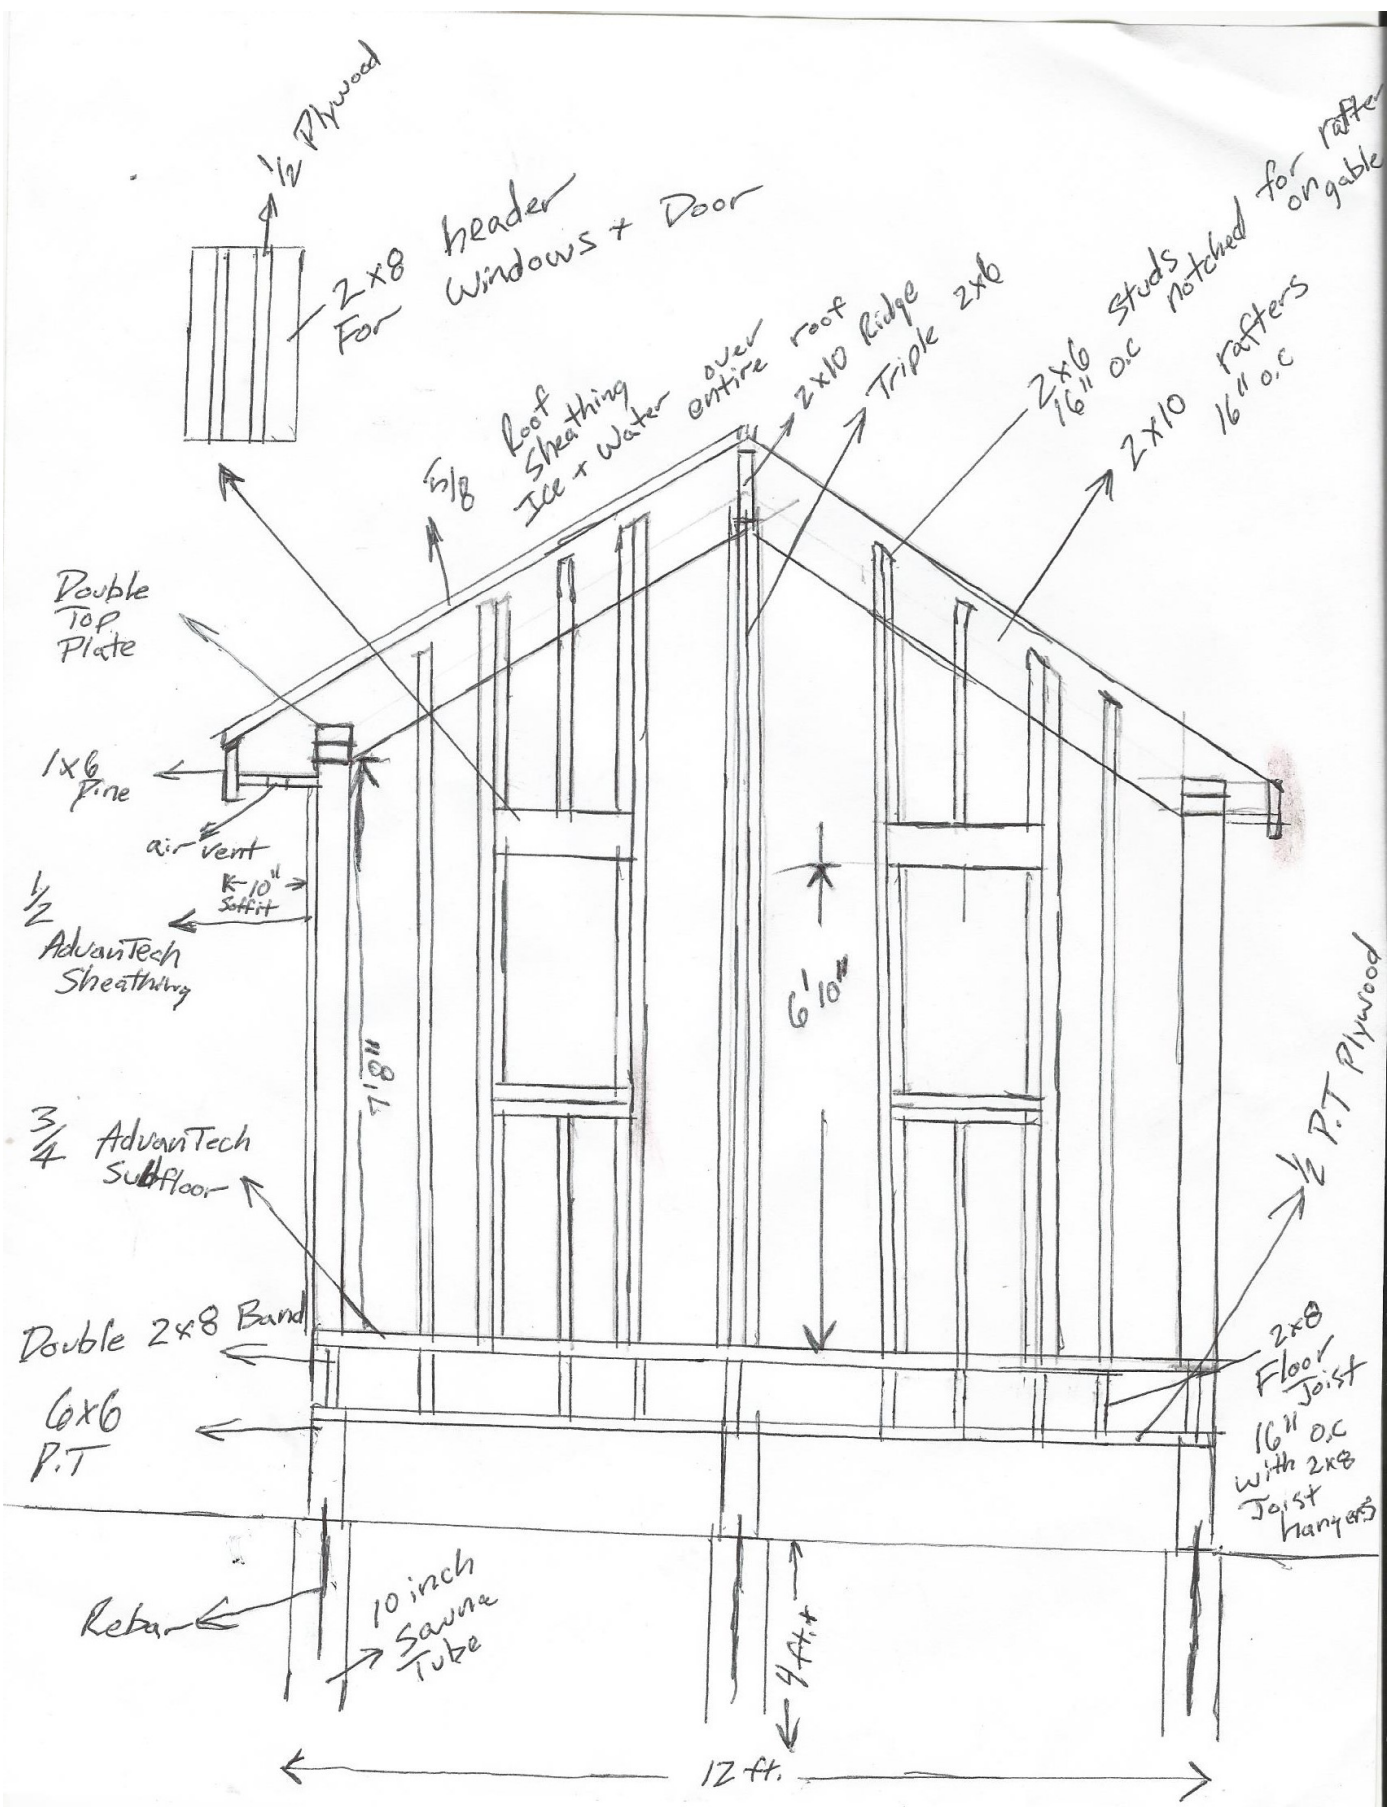 1/2 Plywood
2x8 header
For Windows + Door
5/8 Roof
Sheathing
Ice + Water over
entire roof
2x10 Ridge
Triple 2x6
2x6 studs
16" o.c notched for rafter
on gable
2x10 rafters
16" o.c
Double
Top
Plate
1x6
Pine
air vent
10"
Soffit
1/2
AdvanTech
Sheathing
7'8"
6'10"
1/2 P.T Plywood
3/4 AdvanTech
Subfloor
Double 2x8 Band
6x6
P.T
2x8
Floor
Joist
16" o.c
with 2x8
Joist
hangers
Rebar
10 inch
Sauna
Tube
4 ft.+
12 ft.